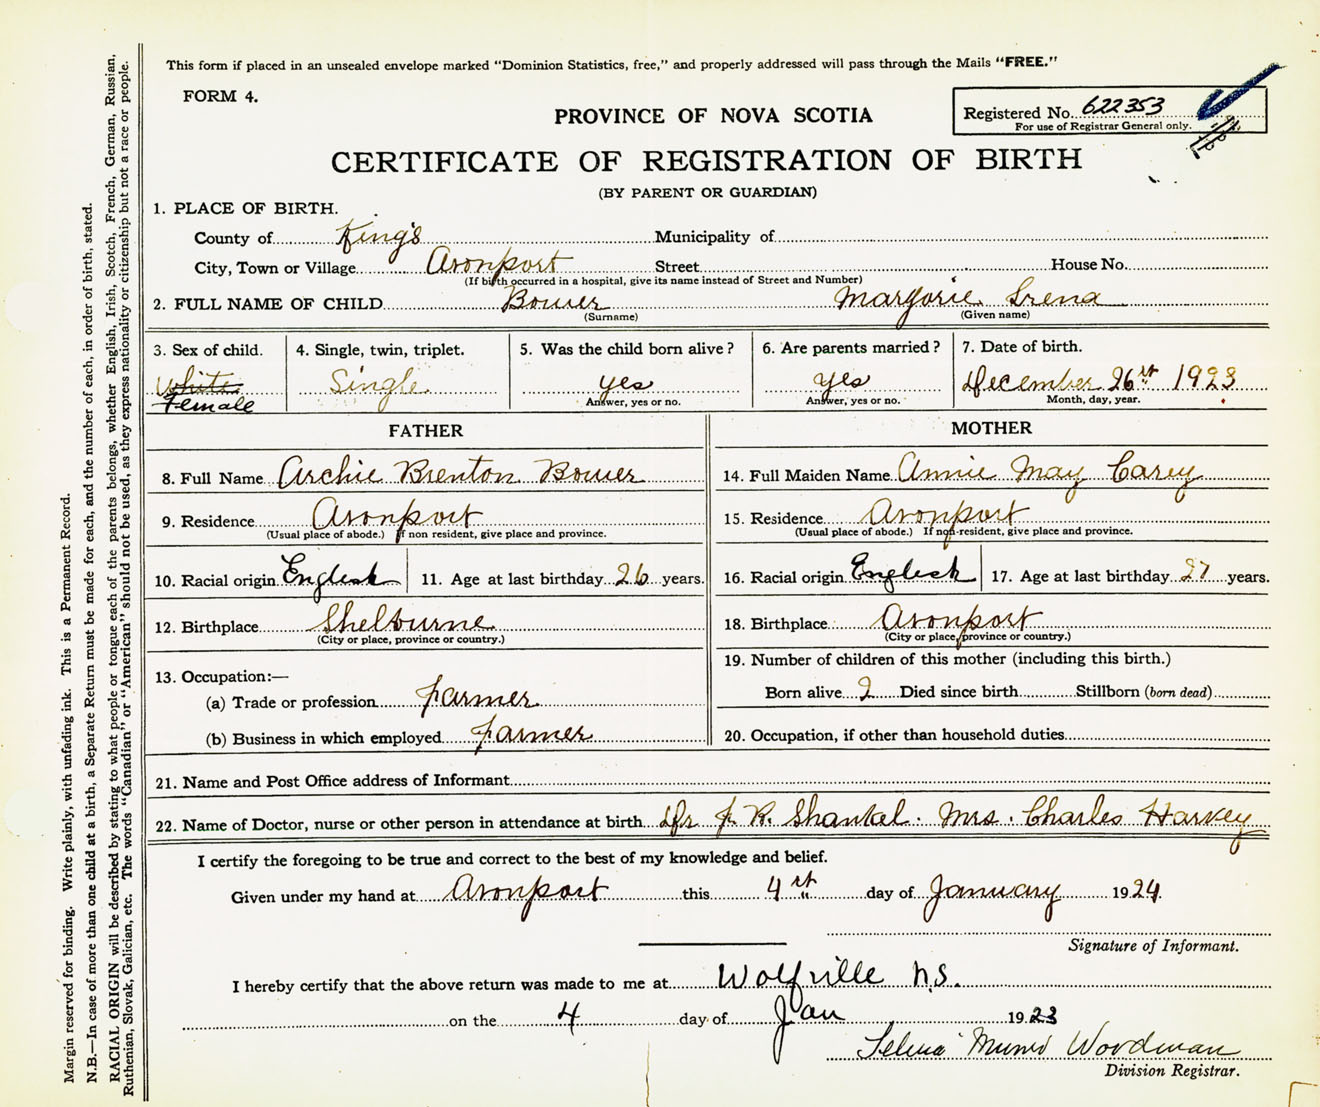 This form if placed in an unsealed envelope marked "Dominion Statistics, free," and properly addressed will pass through the Mails "FREE."
FORM 4.
PROVINCE OF NOVA SCOTIA
Registered No. 622353
For use of Registrar General only.
CERTIFICATE OF REGISTRATION OF BIRTH
(BY PARENT OR GUARDIAN)
1. PLACE OF BIRTH.
County of King's Municipality of
City, Town or Village Avonport Street House No.
(If birth occurred in a hospital, give its name instead of Street and Number)
2. FULL NAME OF CHILD Bower Marjorie Irena
(Surname) (Given name)
3. Sex of child. 4. Single, twin, triplet. 5. Was the child born alive? 6. Are parents married? 7. Date of birth.
White Single yes yes December 26th 1923
Female Answer, yes or no. Answer, yes or no. Month, day, year.
FATHER MOTHER
8. Full Name Archie Brenton Bower 14. Full Maiden Name Annie May Carey
9. Residence Avonport 15. Residence Avonport
(Usual place of abode.) If non resident, give place and province. (Usual place of abode.) If non-resident, give place and province.
10. Racial origin English 11. Age at last birthday 26 years. 16. Racial origin English 17. Age at last birthday 27 years.
12. Birthplace Shelburne 18. Birthplace Avonport
(City or place, province or country.) (City or place, province or country.)
13. Occupation:— 19. Number of children of this mother (including this birth.)
(a) Trade or profession farmer Born alive 2 Died since birth Stillborn (born dead)
(b) Business in which employed farmer 20. Occupation, if other than household duties
21. Name and Post Office address of Informant
22. Name of Doctor, nurse or other person in attendance at birth Dr J. R. Shankel. Mrs. Charles Harvey
I certify the foregoing to be true and correct to the best of my knowledge and belief.
Given under my hand at Avonport this 4th day of January 1924.
Signature of Informant.
I hereby certify that the above return was made to me at Wolfville N.S.
on the 4 day of Jan 1923
Selena Munro Woodman
Division Registrar.
Margin reserved for binding. Write plainly, with unfading ink. This is a Permanent Record.
N.B.—In case of more than one child at a birth, a Separate Return must be made for each, and the number of each, in order of birth, stated.
RACIAL ORIGIN will be described by stating to what people or tongue each of the parents belongs, whether English, Irish, Scotch, French, German, Russian,
Ruthenian, Slovak, Galician, etc. The words "Canadian" or "American" should not be used, as they express nationality or citizenship but not a race or people.